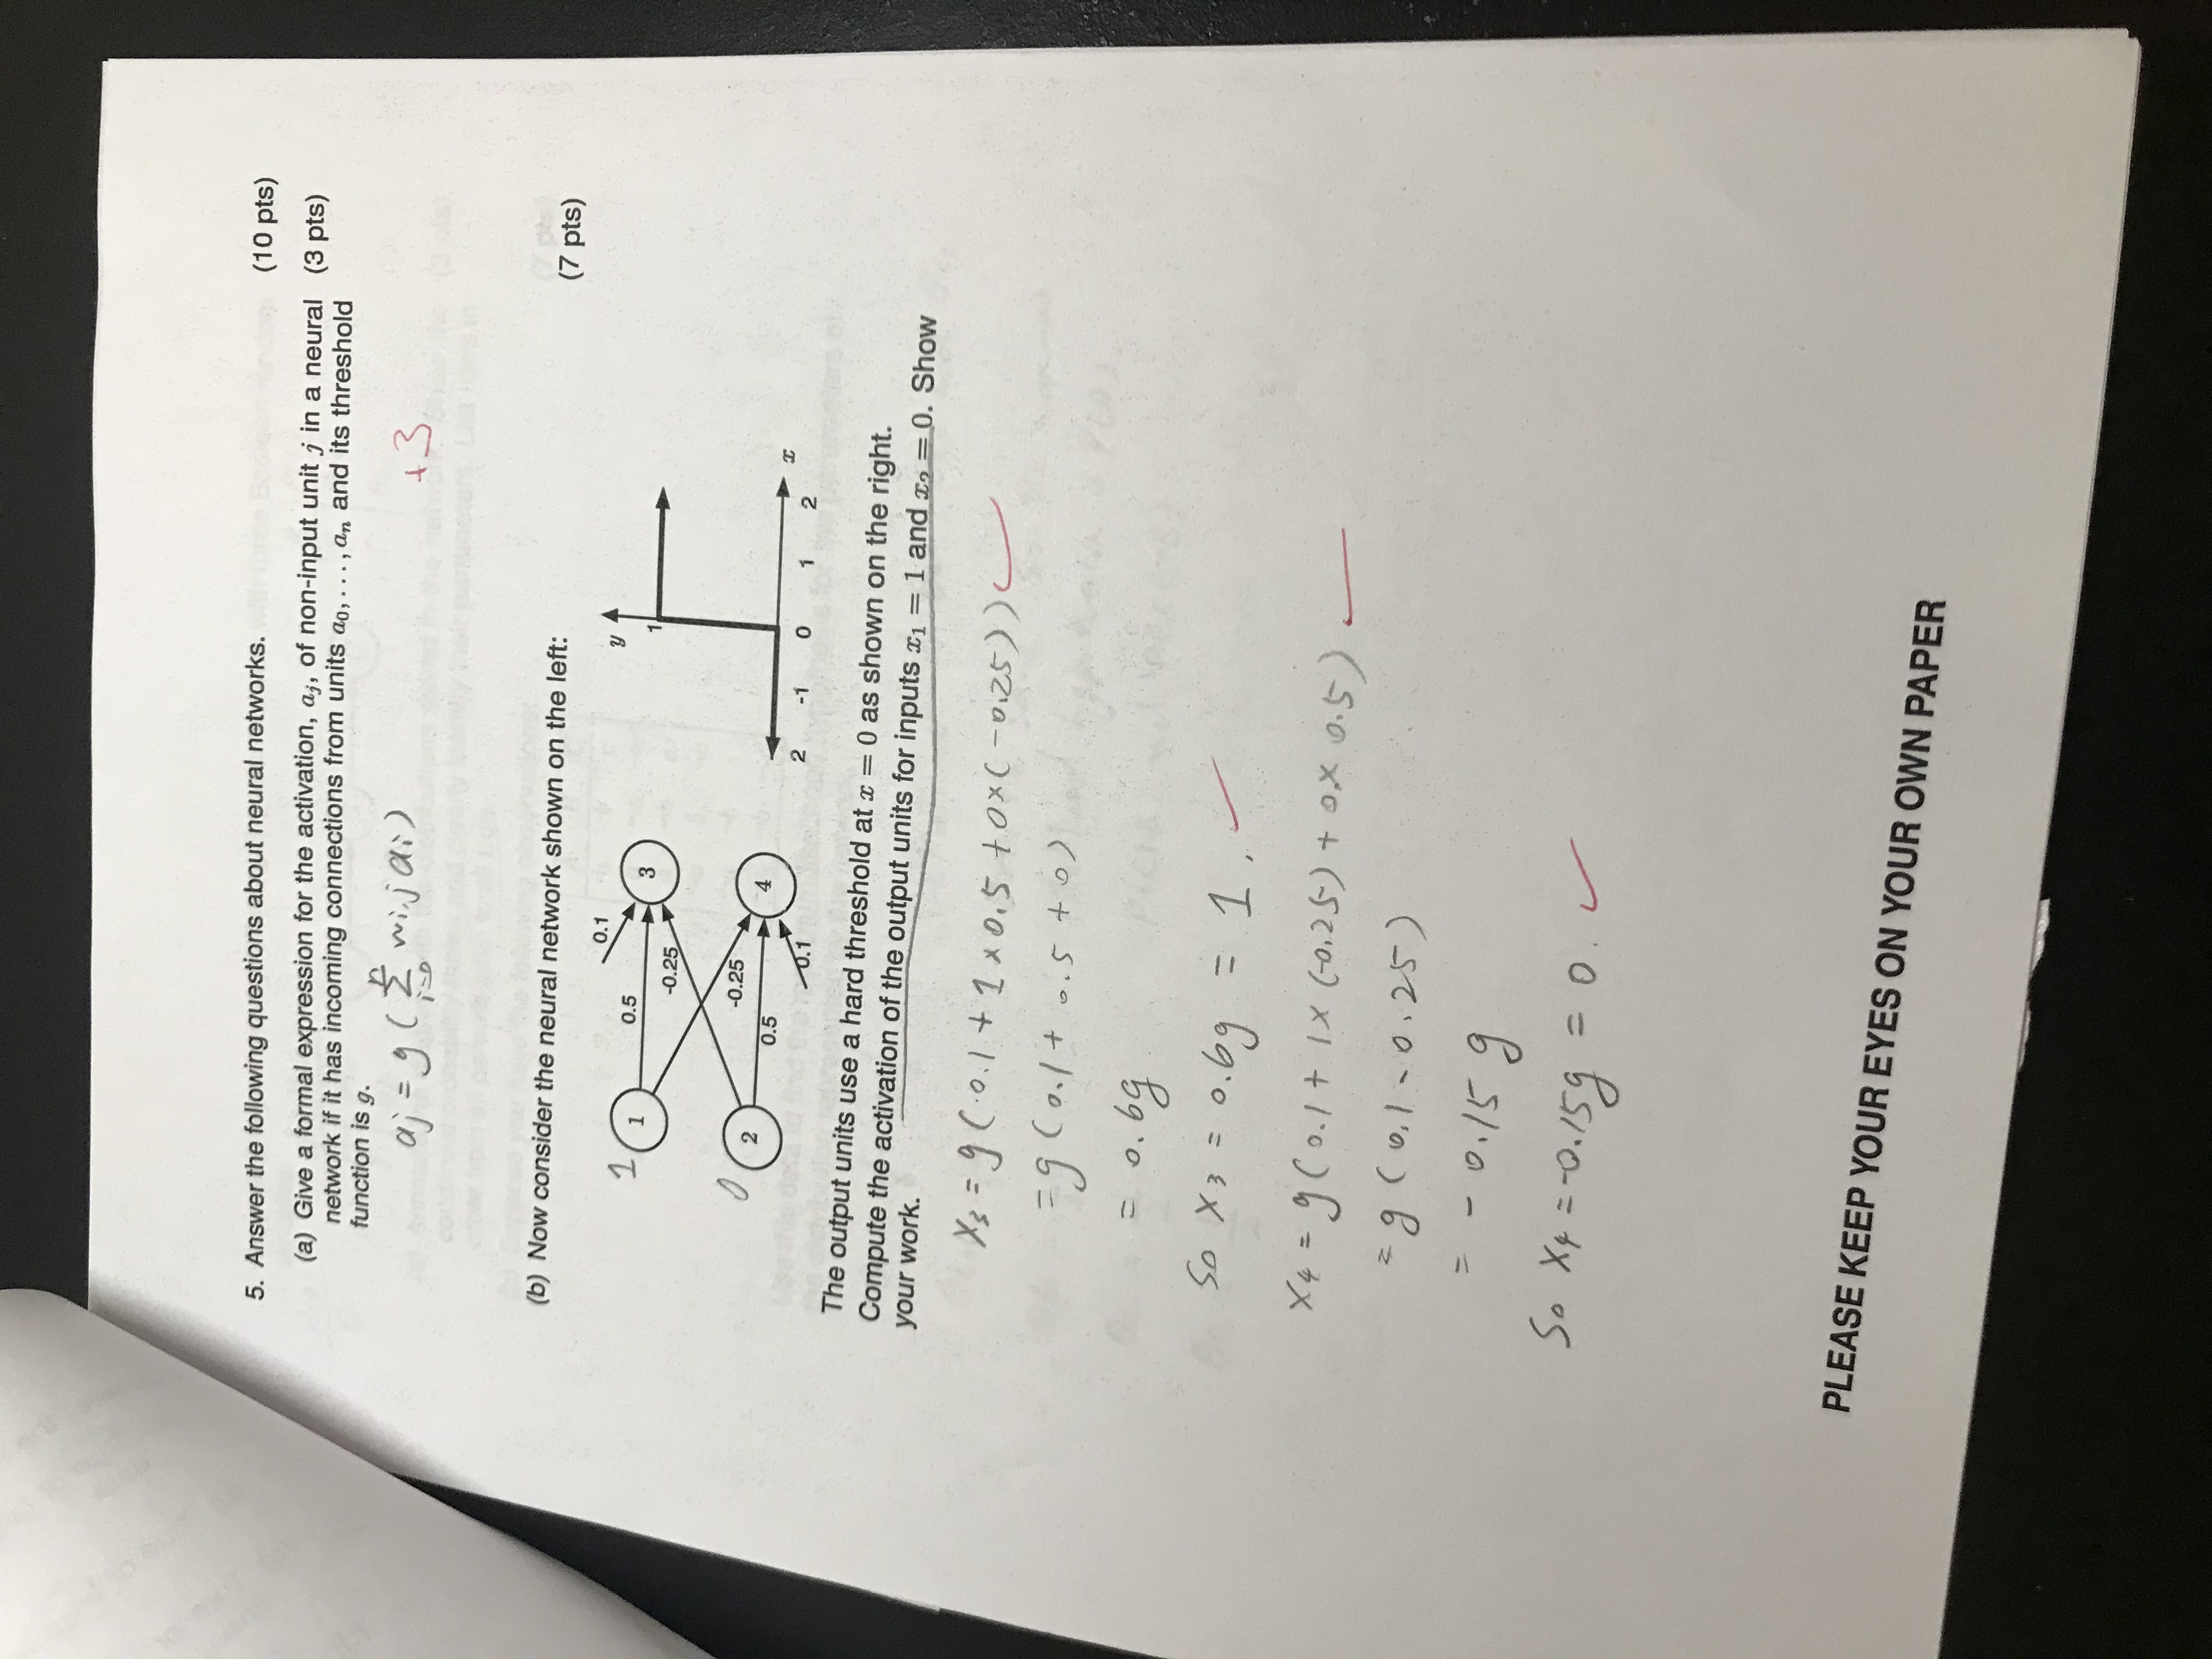 5. Answer the following questions about neural networks. (10 pts)
(a) Give a formal expression for the activation, aⱼ, of non-input unit j in a neural (3 pts)
network if it has incoming connections from units a₀, . . . , aₙ and its threshold
function is g.
aj = g ( n Σ i=0 wi,j ai )
+3
(b) Now consider the neural network shown on the left:
(7 pts)
0.1
1 1 0.5 3
-0.25
0 2 -0.25 4
0.5
0.1
y
1
2 -1 0 1 2 x
The output units use a hard threshold at x = 0 as shown on the right.
Compute the activation of the output units for inputs x₁ = 1 and x₂ = 0. Show
your work.
X₃ = g ( 0.1 + 1 × 0.5 + 0×( -0.25 ) )
= g ( 0.1 + 0.5 + 0 )
= 0.6g
So X₃ = 0.6g = 1.
X₄ = g ( 0.1 + 1× (-0.25) + 0× 0.5 )
= g ( 0.1 - 0.25 )
= - 0.15 g
So X₄ = -0.15g = 0.
PLEASE KEEP YOUR EYES ON YOUR OWN PAPER